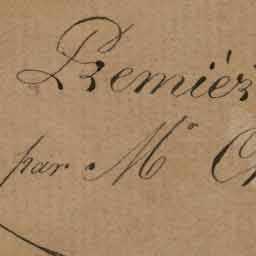 Premièr
par Mr